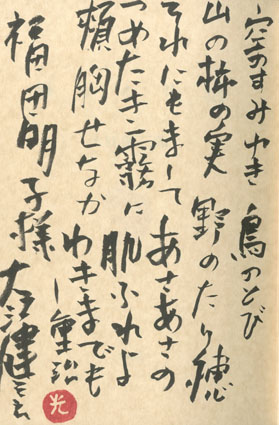 空のすみゆき 鳥のとび
山の柿の実 野のたり穂
それにもまして あさあさの
つめたき霧に 肌ふれよ
頬胸せなか わきまでも
―重治
福田明子様
大江健三郎
光